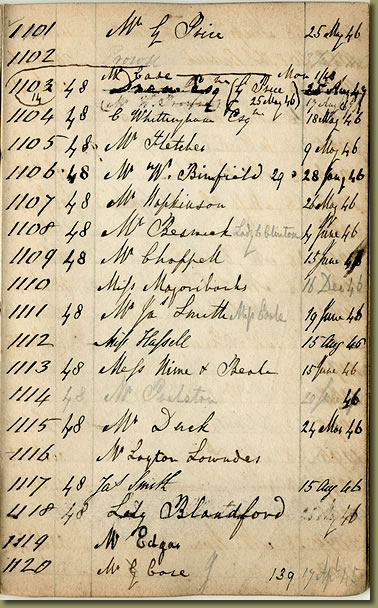 1101 Mr G Price 25 May 46
1102
1103 48 Mr Case Mon 1/48
14 (G Price 25 May 46)
1104 48 C Whittingham Esq 18 May 46
1105 48 Mr Fletcher 9 May 46
1106 48 Mr Wm Binfield 29 28 Jany 46
1107 48 Mr Hopkinson 26 May 46
1108 48 Mr Beswick Lady E Clinton 4 June 46
1109 48 Mr Chappell 15 June 46
1110 Miss Majoribanks 16 Dec 46
1111 48 Mr Jas Smith Miss 19 June 46
1112 Miss Hassell 15 Aug 46
1113 48 Mess Nime & Beale 15 June 46
1114 48 Mr 46
1115 48 Mr Duck 24 Mar 46
1116 Mr Layton Lowndes
1117 48 Jas Smith 15 Aug 46
1118 48 Lady Blandford 46
1119 Mr Edgar
1120 Mr G Case 139 17